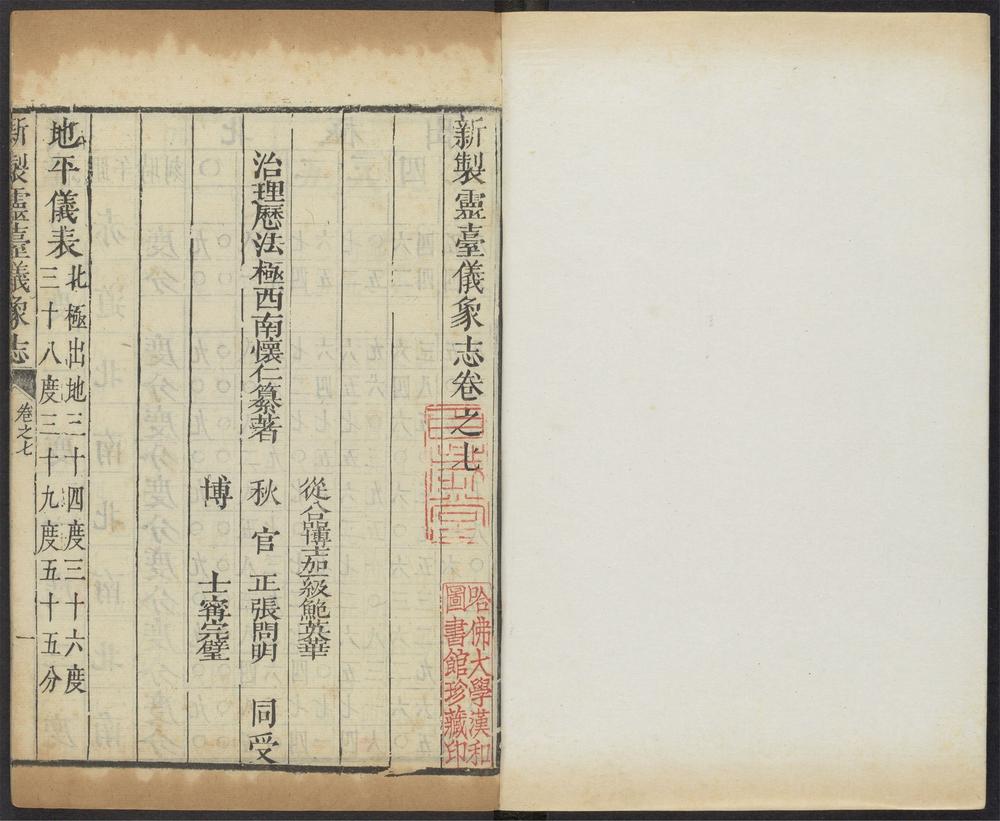 新製靈臺儀象志卷之七
哈佛大學漢和
圖書館珍藏印
從八品博士加一級鮑英華
治理曆法極西南懷仁纂著 秋官正張問明 同受
博士甯完璧
地平儀表 北極出地三十四度三十六度
三十八度三十九度五十五分
新製靈臺儀象志 卷之七 一